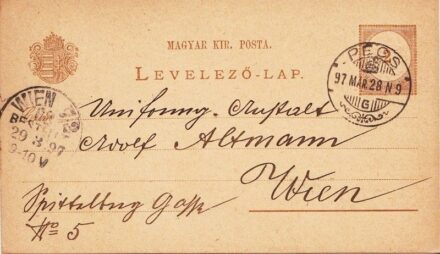 MAGYAR KIR. POSTA.
LEVELEZŐ-LAP.
PÉCS
97 MÁR. 28 N 9
G
WIEN
BESTELLT
29 3 97
9-10 V
Uniformg.-Anstalt
Adolf Altmann
Wien
Spittelbrg Gasse
No 5